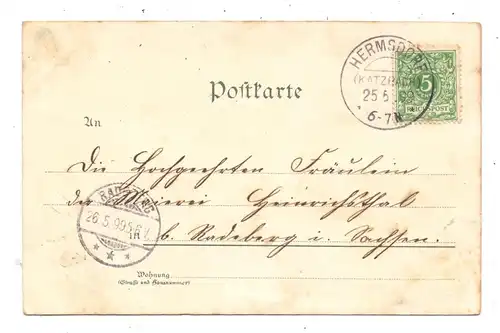 HERMSDORF
(KATZBACH)
25 5 99
6-7N
5
REICHSPOST
Postkarte
An
Die Hochgeehrten Fräulein
der Meierei Heinrichsthal
in b. Radeberg i. Sachsen.
RADEBERG
26.5.99.5-6V.
Wohnung
(Straße und Hausnummer)